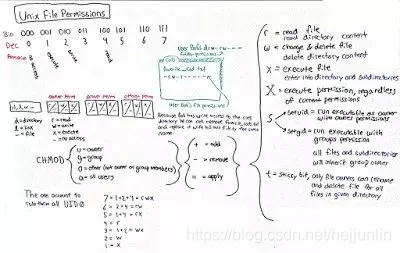 Unix File Permissions
Bin 000 001 010 011 100 101 110 111
Dec 0 1 2 3 4 5 6 7
execute
write
read
user perms group perms other perms
d = directory
l = link
- = file
r = read
w = write
x = execute
- = no access
CHMOD
u = owner
g = group
o = other (not owner or group members)
a = all users
+ = add
- = remove
= = apply
The one account to
rule them all UID 0
7 = 1+2+4 = rwx
6 = 2+4 = rw
5 = 1+4 = rx
4 = r
3 = 1+2 = wx
2 = w
1 = x
Because Bob has write access to the cats
directory he can
and replace it with his own file by the same
name
r = read file
read directory content
w = change & delete file
delete directory content
x = execute file
enter into directory and subdirectories
X = execute permission, regardless
of current permissions
s
setuid = run executable as owner
with owners permissions
setgid = run executable with
groups permission
all files and subdirectories
will inherit group owner
t = sticky bit, only file owners can rename
and delete file for all
files in given directory
https://blog.csdn.net/hejjunlin